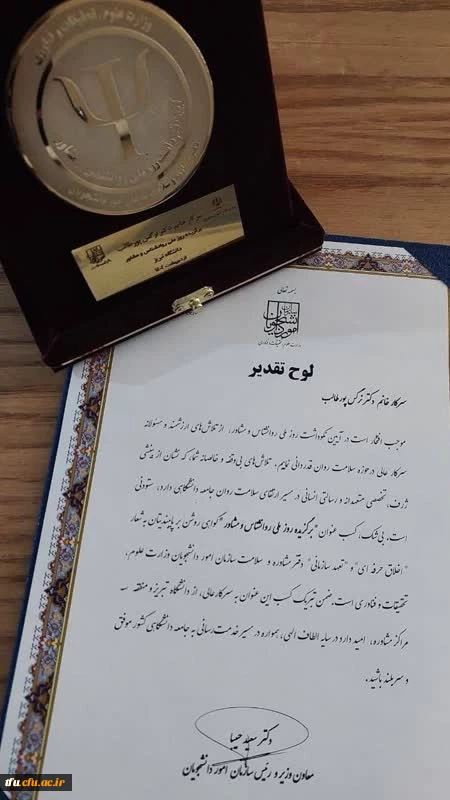 وزارت علوم، تحقیقات و فناوری
سرکار خانم دکتر نرگس پورطالب
برگزیده روز ملی روانشناس و مشاور
دانشگاه تبریز
بسمه تعالی
سازمان امور دانشجویان
وزارت علوم، تحقیقات و فناوری
لوح تقدیر
سرکار خانم دکتر نرگس پورطالب
موجب افتخار است در آیین نکوداشت روز ملی روانشناس و مشاور، از تلاش‌های ارزشمند و مسئولانه
سرکار عالی در حوزه سلامت روان قدردانی نماییم. تلاش‌های بی‌وقفه و خالصانه شما، که نشان از بینشی
ژرف، تخصصی متعهدانه و رسالتی انسانی در مسیر ارتقای سلامت روان جامعه دانشگاهی دارد، ستودنی
است. بی‌شک، کسب عنوان "برگزیده روز ملی روانشناس و مشاور" گواهی روشن بر پایبندیتان به شعار
"اخلاق حرفه ای" و "تعهد سازمانی" دفتر مشاوره و سلامت سازمان امور دانشجویان وزارت علوم،
تحقیقات و فناوری است. ضمن تبریک کسب این عنوان به سرکار عالی، از دانشگاه تبریز و منطقه ۳
مراکز مشاوره، امید دارد در سایه الطاف الهی، همواره در مسیر خدمت‌رسانی به جامعه دانشگاهی کشور موفق
و سربلند باشید.
دکتر سعید حبیبا
معاون وزیر و رئیس سازمان امور دانشجویان
tfu.cfu.ac.ir